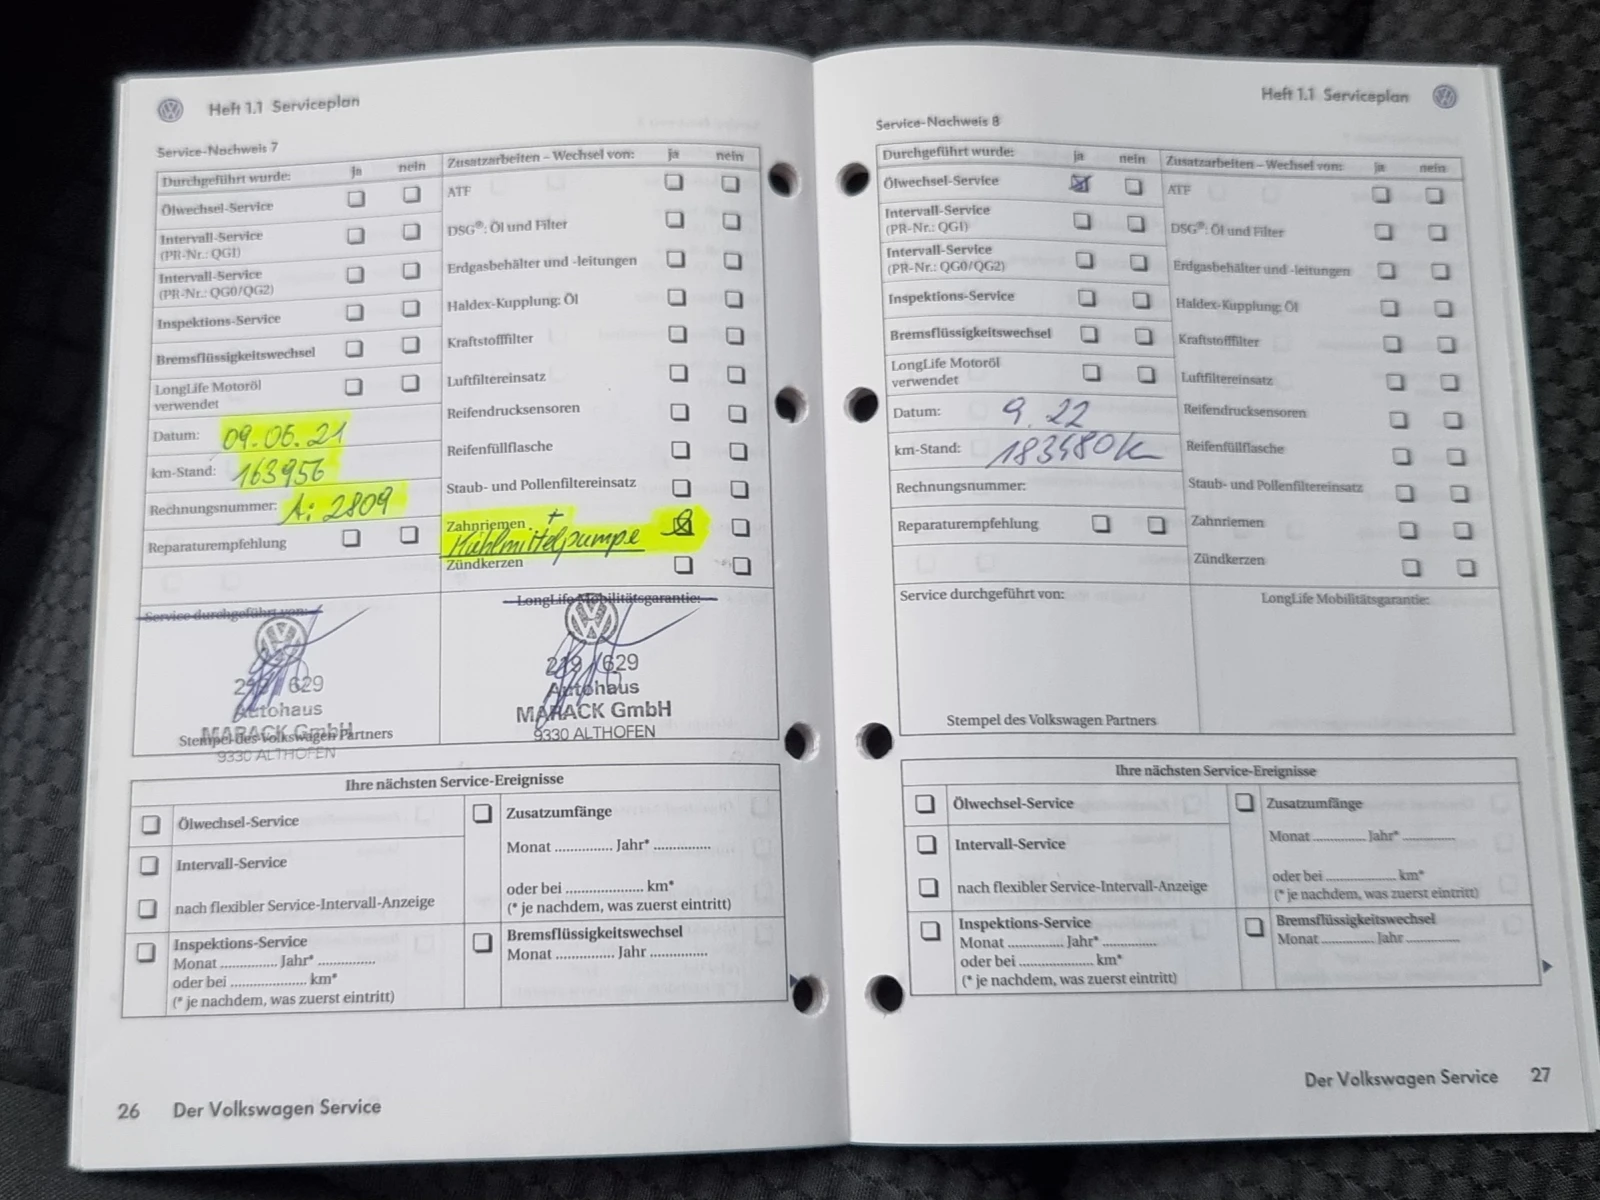 Heft 1.1 Serviceplan
Service-Nachweis 7
Durchgeführt wurde: ja nein
Ölwechsel-Service
Intervall-Service
(PR-Nr.: QG1)
Intervall-Service
(PR-Nr.: QG0/QG2)
Inspektions-Service
Bremsflüssigkeitswechsel
LongLife Motoröl
verwendet
Datum: 09.06.21
km-Stand: 163956
Rechnungsnummer: A: 2809
Reparaturempfehlung
Zusatzarbeiten – Wechsel von: ja nein
ATF
DSG®: Öl und Filter
Erdgasbehälter und -leitungen
Haldex-Kupplung: Öl
Kraftstofffilter
Luftfiltereinsatz
Reifendrucksensoren
Reifenfüllflasche
Staub- und Pollenfiltereinsatz
Zahnriemen +
Kühlmittelpumpe
Zündkerzen
Service durchgeführt von:
629
Autohaus
MARACK GmbH
Stempel des Volkswagen Partners
9330 ALTHOFEN
LongLife Mobilitätsgarantie:
219 / 629
Autohaus
MARACK GmbH
9330 ALTHOFEN
Ihre nächsten Service-Ereignisse
Ölwechsel-Service
Intervall-Service
nach flexibler Service-Intervall-Anzeige
Inspektions-Service
Monat .............. Jahr* ..............
oder bei .................... km*
(* je nachdem, was zuerst eintritt)
Zusatzumfänge
Monat .............. Jahr* ..............
oder bei .................... km*
(* je nachdem, was zuerst eintritt)
Bremsflüssigkeitswechsel
Monat .............. Jahr ..............
26 Der Volkswagen Service
Heft 1.1 Serviceplan
Service-Nachweis 8
Durchgeführt wurde: ja nein
Ölwechsel-Service
Intervall-Service
(PR-Nr.: QG1)
Intervall-Service
(PR-Nr.: QG0/QG2)
Inspektions-Service
Bremsflüssigkeitswechsel
LongLife Motoröl
verwendet
Datum: 9. 22
km-Stand: 183480k
Rechnungsnummer:
Reparaturempfehlung
Zusatzarbeiten – Wechsel von: ja nein
ATF
DSG®: Öl und Filter
Erdgasbehälter und -leitungen
Haldex-Kupplung: Öl
Kraftstofffilter
Luftfiltereinsatz
Reifendrucksensoren
Reifenfüllflasche
Staub- und Pollenfiltereinsatz
Zahnriemen
Zündkerzen
Service durchgeführt von:
Stempel des Volkswagen Partners
LongLife Mobilitätsgarantie:
Ihre nächsten Service-Ereignisse
Ölwechsel-Service
Intervall-Service
nach flexibler Service-Intervall-Anzeige
Inspektions-Service
Monat .............. Jahr* ..............
oder bei .................... km*
(* je nachdem, was zuerst eintritt)
Zusatzumfänge
Monat .............. Jahr* ..............
oder bei .................... km*
(* je nachdem, was zuerst eintritt)
Bremsflüssigkeitswechsel
Monat .............. Jahr ..............
Der Volkswagen Service 27